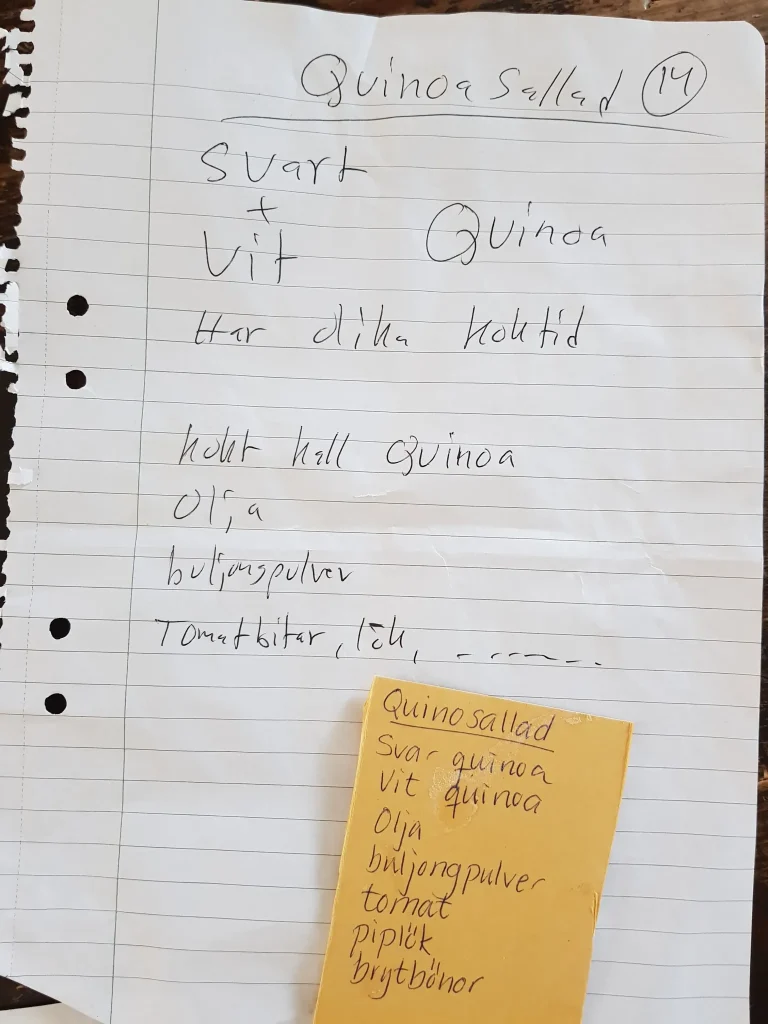 Quinoa Sallad 14
Svart
+
Vit Quinoa
Har olika koktid
kokt kall Quinoa
Olja
buljongpulver
Tomatbitar, lök, -------
Quinosallad
Svar quinoa
Vit quinoa
Olja
buljongpulver
tomat
piplök
brytbönor